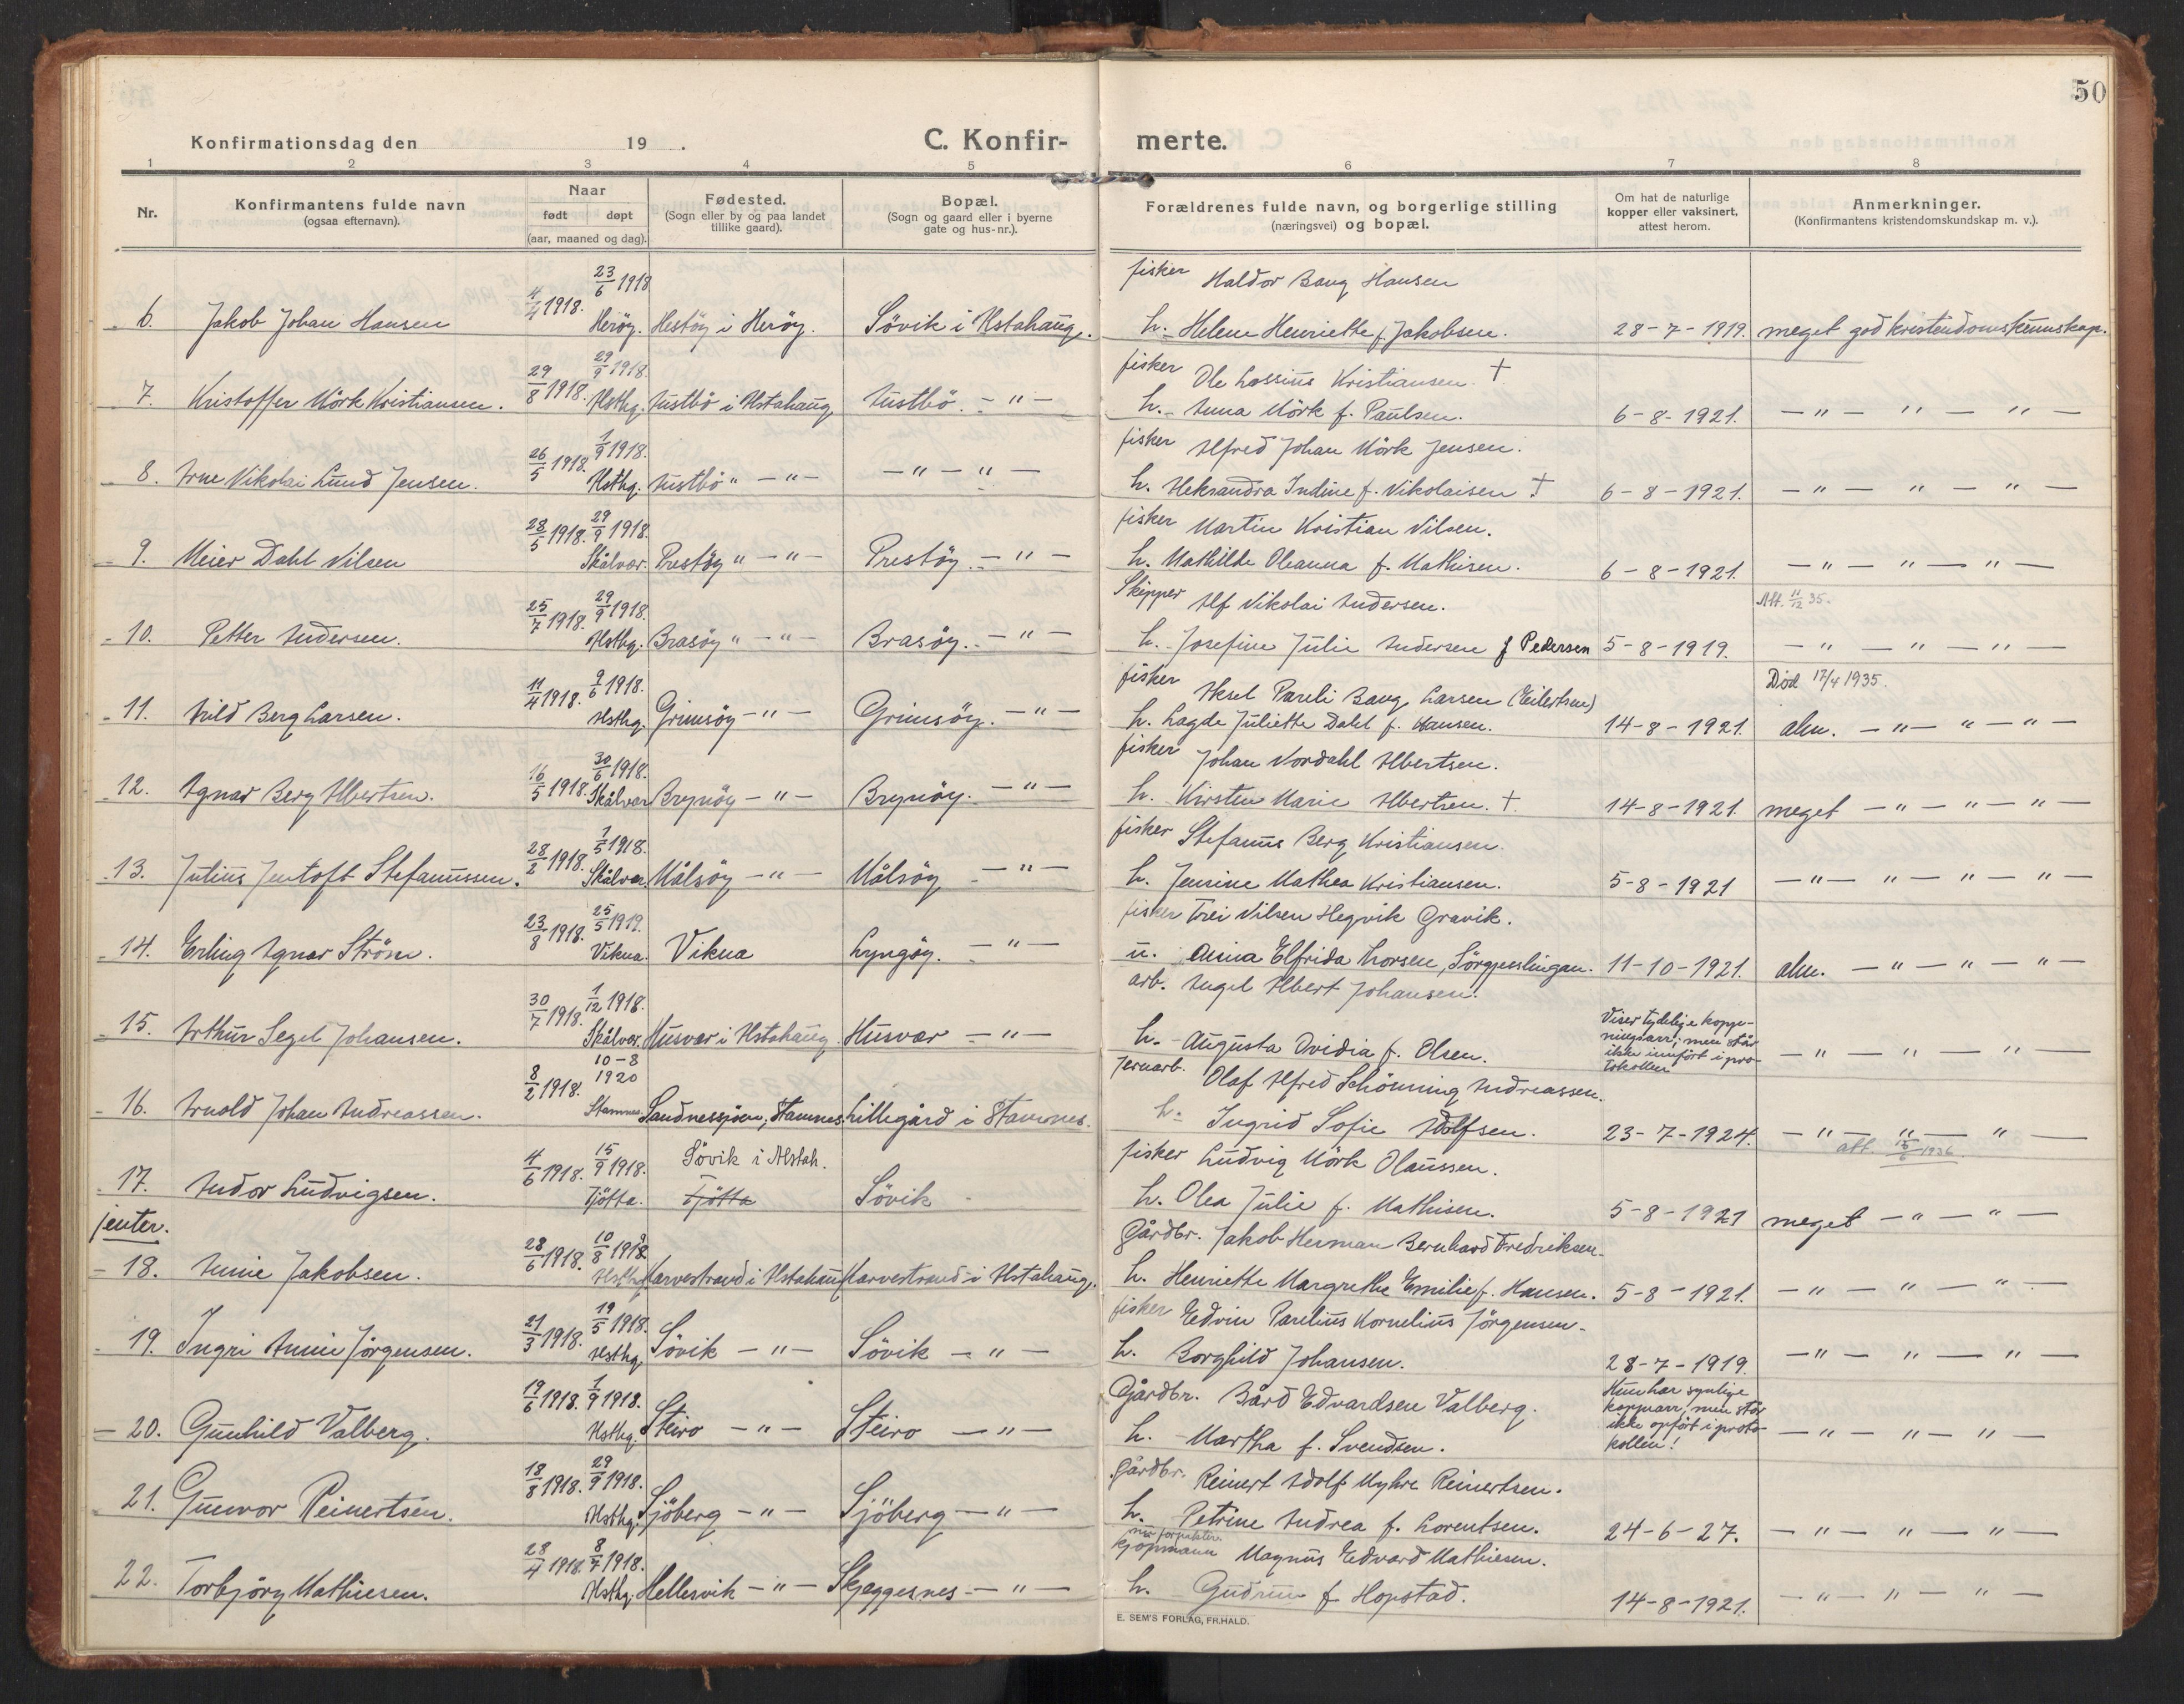 50
Konfirmationsdag den 19 . C. Konfirmerte.
1 2 3 4 5 6 7 8
Nr.
Konfirmantens fulde navn
(ogsaa efternavn).
Naar
født døpt
(aar, maaned og dag).
Fødested.
(Sogn eller by og paa landet
tillike gaard).
Bopæl.
(Sogn og gaard eller i byerne
gate og hus-nr.).
Forældrenes fulde navn, og borgerlige stilling
(næringsvei) og bopæl.
Om hat de naturlige
kopper eller vaksinert,
attest herom.
Anmerkninger.
(Konfirmantens kristendomskundskap m. v.).
23/6 1918 fisker Haldor Bang Hansen
6. Jakob Johan Hansen 4/4 1918. Herøy. Hestøy i Herøy. Søvik i Alstahaug. h. Helene Henriette f. Jakobsen. 28-7-1919. meget god kristendomskunnskap.
29/9 1918. fisker Ole Lossius Kristiansen. †
7. Kristoffer Mörk Kristiansen. 29/8 1918. Alsthg. Austbö i Alstahaug Austbö. - " - h. Anna Mörk f. Paulsen. 6-8-1921. - " - " - " -
1/9 1918. fisker Alfred Johan Mörk Jensen.
8. Arne Nikolai Lund Jensen. 26/5 1918. Alsthg. Austbö " - " - - " - " - h. Aleksandra Indine f. Nikolaisen † 6-8-1921. - " - " - " -
29/9 1918. fisker Martin Kristian Nilsen.
9. Meier Dahl Nilsen 28/5 1918. Skålvær. Prestøy " - " - Prestøy. - " - h. Mathilde Oleanna f. Mathisen. 6-8-1921. - " - " - " -
29/9 1918. Skipper Alf Nikolai Andersen. Att. 11/12 35.
10. Petter Andersen. 25/7 1918. Alsthg. Brasøy " - " - Brasøy. - " - h. Josefine Julie Andersen f Pedersen 5-8-1919. - " - " - " -
9/6 1918. fisker Aksel Pareli Bang Larsen (Eilertsen) Död 17/4 1935.
11. Arild Berg Larsen. 11/4 1918. Alsthg. Grimsøy - " - Grimsøy. - " - h. Lagde Juliette Dahl f. Hansen. 14-8-1921. alm. - " - " - " -
30/6 1918. fisker Johan Nordahl Albertsen.
12. Agnar Berg Albertsen. 16/5 1918. Skålvær Brynøy - " - Brynøy. - " - h. Kirsten Marie Albertsen. †. 14-8-1921. meget - " - " - " -
7/5 1918. fisker Stefanus Berg Kristiansen.
13. Julius Jentoft Stefanussen. 28/2 1918. Skålvær. Målsøy - " - Målsøy - " - h. Jensine Mathea Kristiansen. 5-8-1921 - " - " - " - " -
25/5 1919. fisker Trei Nilsen Hegvik Gravik.
14. Erling Agnar Ström. 23/8 1918. Vikna. Vikna Lyngøy. - " - u. Anna Elfrida Thorsen, Sörgjæslingan. 11-10-1921. alm. - " - " - " -
1/12 1918. arb. Angel Albert Johansen.
15. Arthur Segel Johansen. 30/7 1918. Skålvær. Husvær i Alstahaug. Husvær - " - h. Augusta Ovidia f. Olsen. Viser tydelige koppe-
ningsarr; men står
ikke innfört i pro-
tokollen - " - " - " -
10-8 1920 Jernarb. Olaf Alfred Schönning Andreassen.
16. Arnold Johan Andreassen. 8/2 1918. Stamnes. Sandnessjøen, Stamnes. Lillegård i Stamnes. h. Ingrid Sofie Adolfsen. 23-7-1924. - " - " - " -
15/9 1918. Søvik i Alstah. fisker Ludvig Mörk Olaussen. att. 15/6 1936.
17. Andor Ludvigsen. 4/6 1918. Tjötta. Tjötta Søvik h. Olea Julie f. Mathisen. 5-8-1921 meget - " - " -
jenter.
10/8 1918. Gårdbr. Jakob Herman Bernhard Fredriksen.
18. Annie Jakobsen. 28/6 1918. Alsthg. Harvestrand i Alstahaug Harvestrand i Alstahaug. h. Henriette Margrethe Emilie f. Hansen. 5-8-1921. - " - " - " -
19/5 1918. fisker Edvin Parelius Kornelius Jörgensen.
19. Ingri Annie Jörgensen. 21/3 1918. Alsthg. Søvik - " - Søvik - " - h. Borghild Johansen. 28-7-1919. - " - " - " -
1/9 1918. Gårdbr. Bård Edvardsen Valberg.
20. Gunhild Valberg. 19/6 1918. Alsthg. Steiro - " - Steiro - " - h. Martha f. Svendsen. Hun har synlige
kopparr, men står
ikke opfört i proto-
kollen! - " - " - " -
29/9 1918. Gårdbr. Reinert Adolf Myhre Reinertsen.
21. Gunvor Reinertsen. 18/8 1918. Alsthg. Sjöberg - " - Sjöberg - " - h. Petrine Andrea f. Lorentsen. 24-6-27. - " - " - " -
8/7 1918. kjöpmann Magnus Edvard Mathiesen.
22. Torbjörg Mathiesen. 28/4 1918. Alsthg. Hellesvik - " - Skjeggesnes - " - h. Gudrun f. Hopstad. 14-8-1921. - " - " - " -
E. SEM'S FORLAG, FR.HALD.